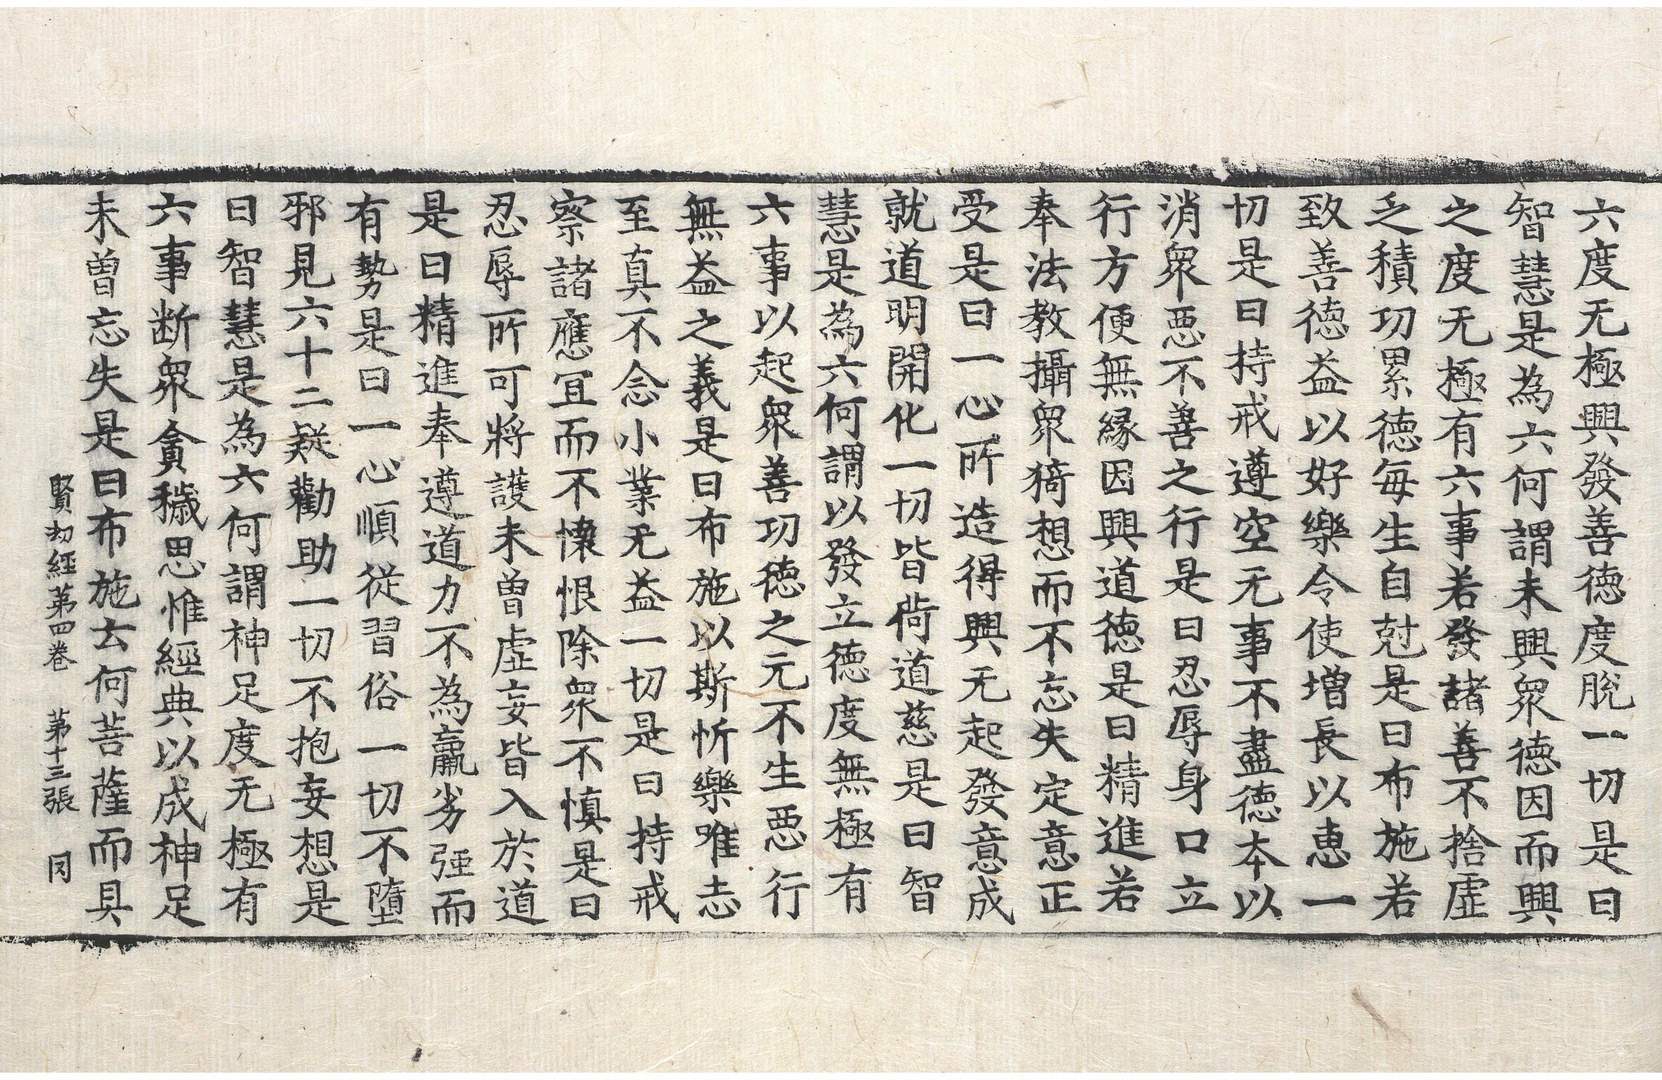 六度无極興發善德度脫一切是曰
智慧是為六何謂未興衆德因而興
之度无極有六事若發諸善不捨虛
乏積功累德每生自剋是曰布施若
致善德益以好樂令使增長以惠一
切是曰持戒遵空无事不盡德本以
消衆惡不善之行是曰忍辱身口立
行方便無緣因興道德是曰精進若
奉法教攝衆猗想而不忘失定意正
受是曰一心所造得興无起發意成
就道明開化一切皆荷道慈是曰智
慧是為六何謂以發立德度無極有
六事以起衆善功德之元不生惡行
無益之義是曰布施以斯忻樂唯志
至真不念小業无益一切是曰持戒
察諸應宜而不懷恨除衆不慎是曰
忍辱所可將護未曾虛妄皆入於道
是曰精進奉遵道力不為羸劣强而
有勢是曰一心順從習俗一切不墮
邪見六十二疑勸助一切不抱妄想是
曰智慧是為六何謂神足度无極有
六事断衆貪穢思惟經典以成神足
未曾忘失是曰布施去何菩薩而具
賢劫經第四卷 第十三張 同